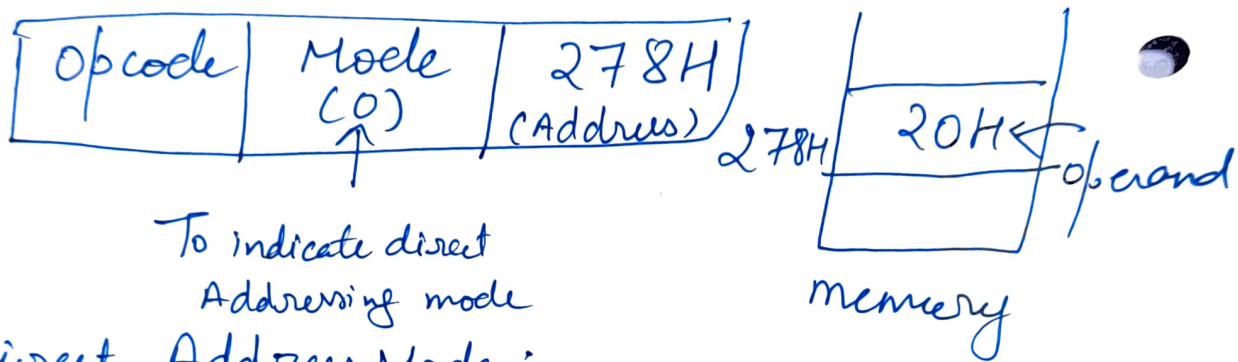 Opcode Mode 278H
(0) (Address)
278H 20H
operand
To indicate direct
Addressing mode
memory
Address Mode :